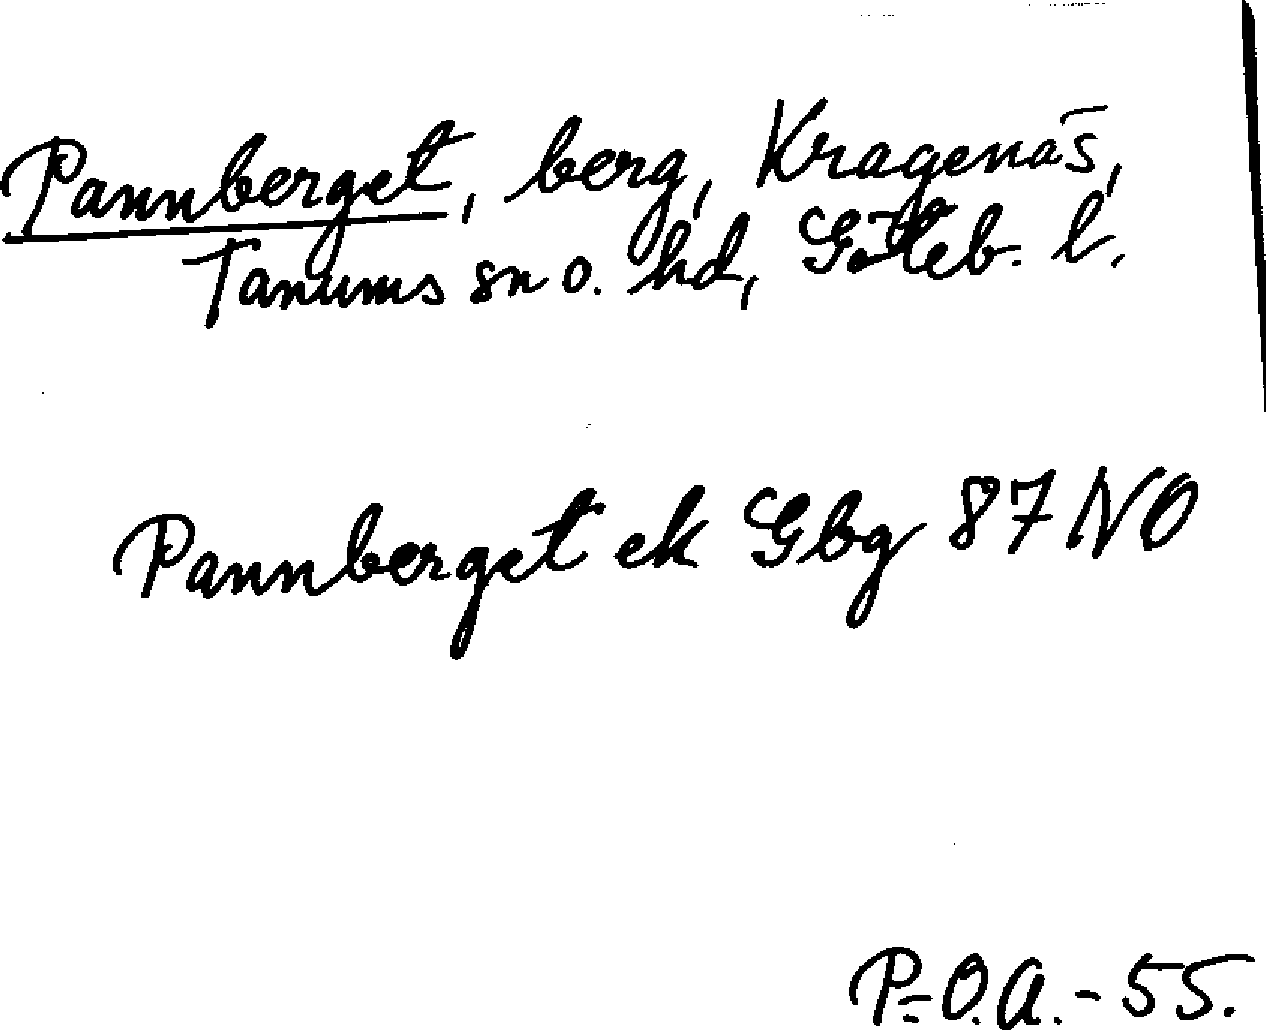 Pannberget, berg, Kragenäs,
Tanums sn o. hd, Göteb. l.
Pannberget ek Gbg 87 NO
P-O.A.-55.